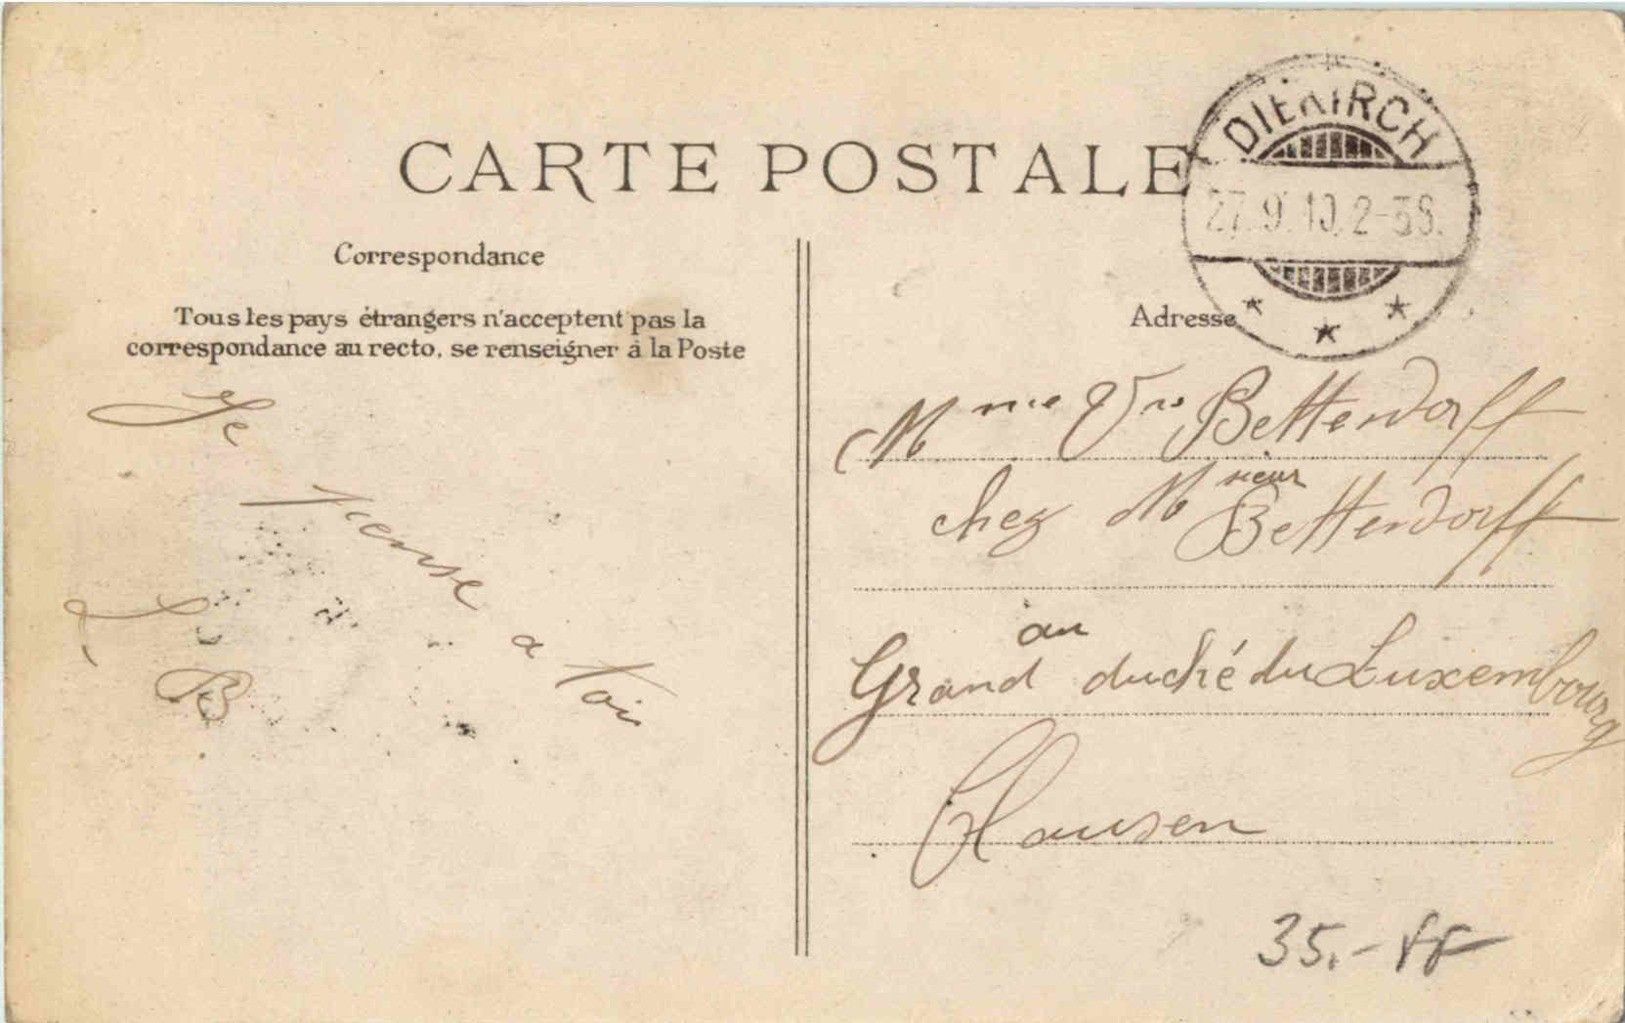 CARTE POSTALE
DIEKIRCH
27.9.10.2-3S.
Correspondance
Tous les pays étrangers n'acceptent pas la
correspondance au recto, se renseigner à la Poste
Adresse
Je
pense
a toi
L
B
Mme Vve Bettendorff
chez Msieur Bettendorff
au
Grand duché du Luxembourg
Clausen
35.-